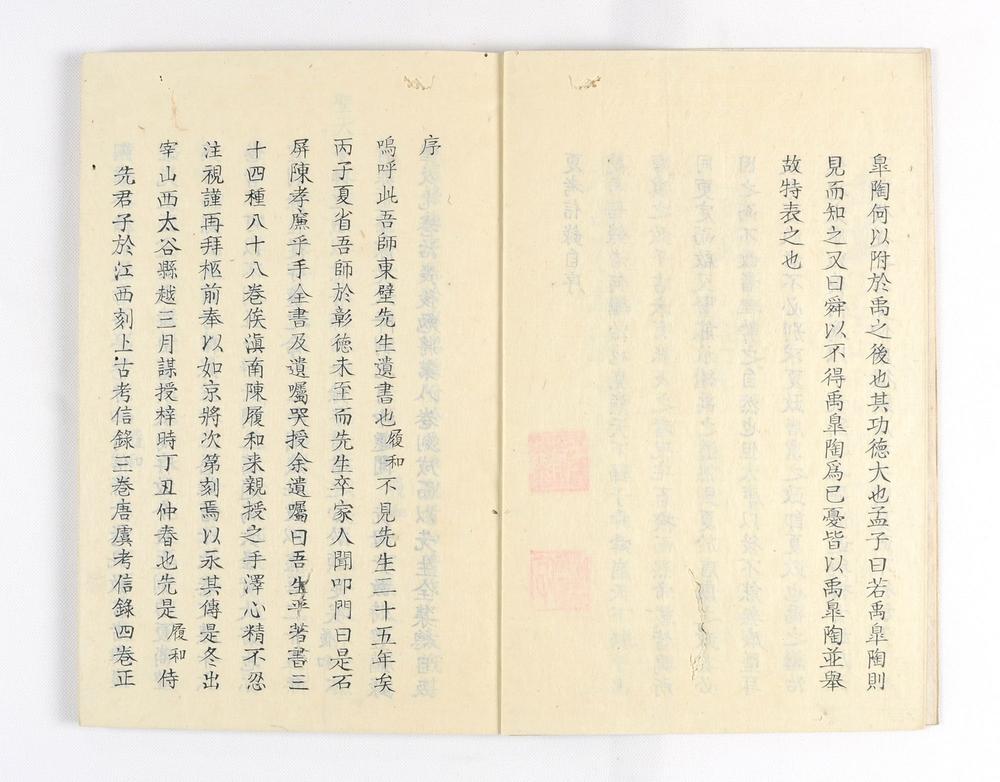 皐陶何以附於禹之後也其功德大也孟子曰若禹皐陶則
見而知之又曰舜以不得禹皐陶爲己憂皆以禹皐陶並舉
故特表之也
序
嗚呼此吾師東壁先生遺書也履和不見先生二十五年矣
丙子夏省吾師於彰德未至而先生卒家人聞叩門曰是石
屏陳孝廉乎手全書及遺囑哭授余遺囑曰吾生平著書三
十四種八十八卷俟滇南陳履和来親授之手澤心精不忍
注視謹再拜柩前奉以如京將次第刻焉以永其傳是冬出
宰山西太谷縣越三月謀授梓時丁丑仲春也先是履和侍
先君子於江西刻上古考信錄三卷唐虞考信錄四卷正